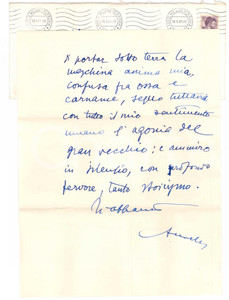 A portar sotto terra la
meschina anima mia,
confusa fra ossa e
carname, seguo tuttavia
con tutto il mio sentimento
umano l'agonia del
gran vecchio; e ammiro
in silenzio, con profondo
fervore, tanto stoicismo.